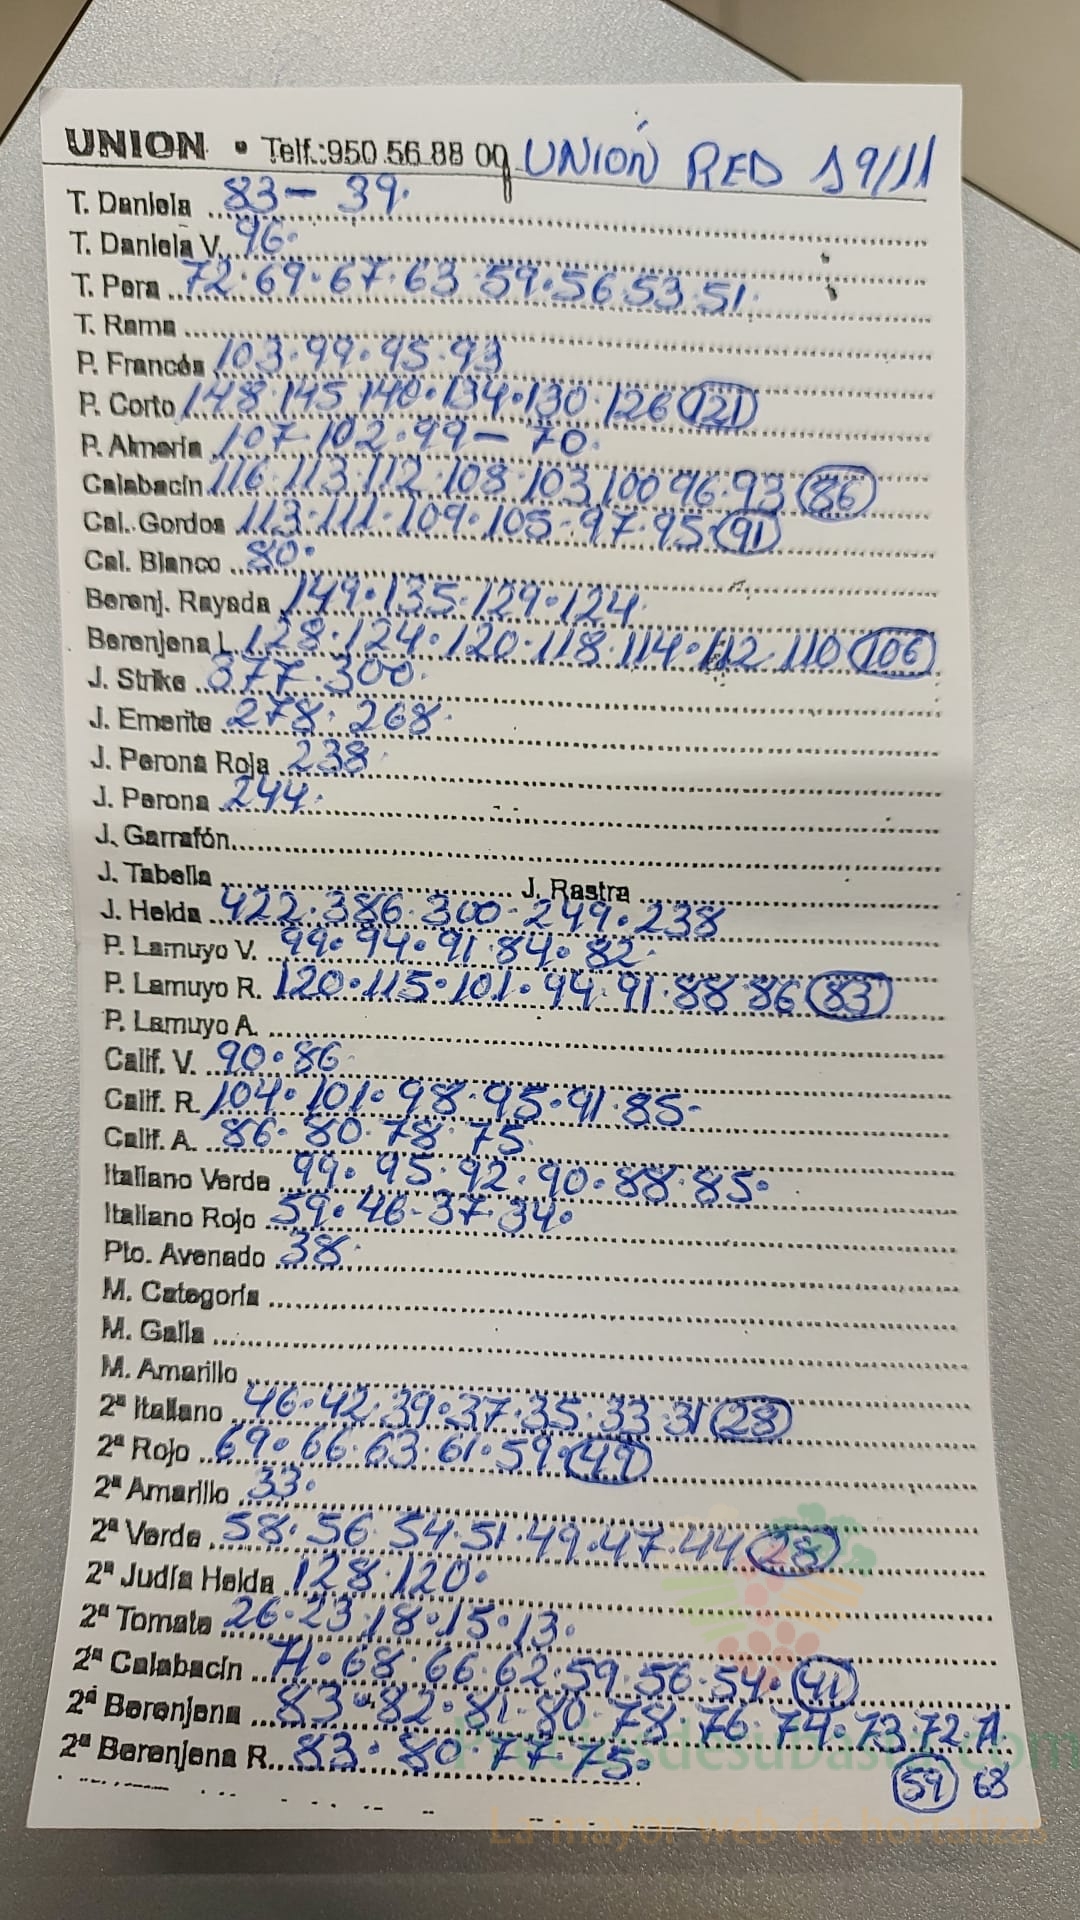 UNION • Telf.:950 56 88 09 UNIÓN RED 19/11
T. Daniela 83 - 39.
T. Daniela V. 96.
T. Pera 72.69.67.63 59.56 53.51.
T. Rama
P. Francés 103.99.95.93
P. Corto 148.145 140.134.130.126 121
P. Almería 107.102.99 - 70.
Calabacín 116.113.112.108.103 100 96.93 86
Cal. Gordos 113.111.109.105-97.95 91
Cal. Blanco 80.
Berenj. Rayada 149.135.129.124.
Berenjena L 128.124.120.118.114.112.110 106
J. Strike 377.300.
J. Emerite 278.268.
J. Perona Roja 238
J. Perona 244.
J. Garrafón
J. Tabella J. Rastra
J. Helda 422.386.300-249.238
P. Lamuyo V. 99.94.91.84.82.
P. Lamuyo R. 120.115.101.94.91.88 86 83
P. Lamuyo A.
Calif. V. 90.86
Calif. R. 104.101.98.95.91.85-
Calif. A. 86.80.78.75
Italiano Verde 99.95.92.90.88.85.
Italiano Rojo 59.46-37.34.
Pto. Avenado 38.
M. Categoría
M. Galia
M. Amarillo
2ª Italiano 46.42.39.37.35.33.31 28
2ª Rojo 69.66.63.61.59. 49
2ª Amarillo 33.
2ª Verde 58.56.54.51.49.47.44 28
2ª Judía Helda 128.120.
2ª Tomate 26.23.18.15.13.
2ª Calabacín 71.68.66.62.59.56.54. 41
2ª Berenjena 83.82.81.80.78.76.74.73.72.71
2ª Berenjena R. 83.80.77.75.
59 68
La mayor web de hortalizas